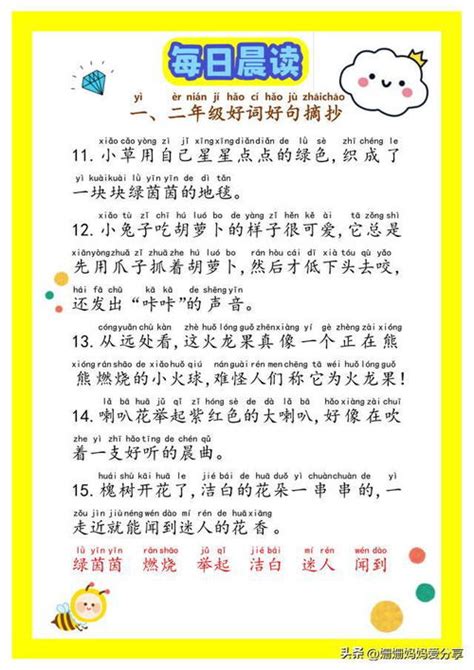 每日晨读
yì èr nián jí hǎo cí hǎo jù zhāichāo
一、二年级好词好句摘抄
xiǎo cǎo yòng zì jǐ xīngxīngdiǎndiǎn de lǜ sè zhī chéng le
11. 小草用自己星星点点的绿色，织成了
yí kuàikuài lǜ yīnyīn de dì tǎn
一块块绿茵茵的地毯。
xiǎo tù zǐ chī hú luó bo de yàng zǐ hěn kě ài tā zǒng shì
12. 小兔子吃胡萝卜的样子很可爱，它总是
xiānyòngzhuǎ zǐ zhuāzhe hú luó bo rán hòu cái dī xià tóu qù yǎo
先用爪子抓着胡萝卜，然后才低下头去咬，
hái fā chū kā kā de shēng yīn
还发出“咔咔”的声音。
cóngyuǎnchù kàn zhè huǒ lóng guǒ zhēnxiàng yí gè zhèng zài xióng
13. 从远处看，这火龙果真像一个正在熊
xióng ránshāo de xiǎohuǒ qiú nánguài rén men chēng tā wéi huǒ lóng guǒ
熊燃烧的小火球，难怪人们称它为火龙果！
lǎ bā huā jǔ qǐ zǐ hóng sè de dà lǎ bā hǎoxiàng zài chuī
14. 喇叭花举起紫红色的大喇叭，好像在吹
zhe yì zhī hǎo tīng de chén qǔ
着一支好听的晨曲。
huái shù kāi huā le jié bái de huā duǒ yí chuànchuàn de yì
15. 槐树开花了，洁白的花朵一串串的，一
zǒu jìn jiù néng wén dào mí rén de huā xiāng
走近就能闻到迷人的花香。
lǜ yīn yīn ránshāo jǔ qǐ jié bái mí rén wén dào
绿茵茵 燃烧 举起 洁白 迷人 闻到
头条 @姗姗妈妈爱分享